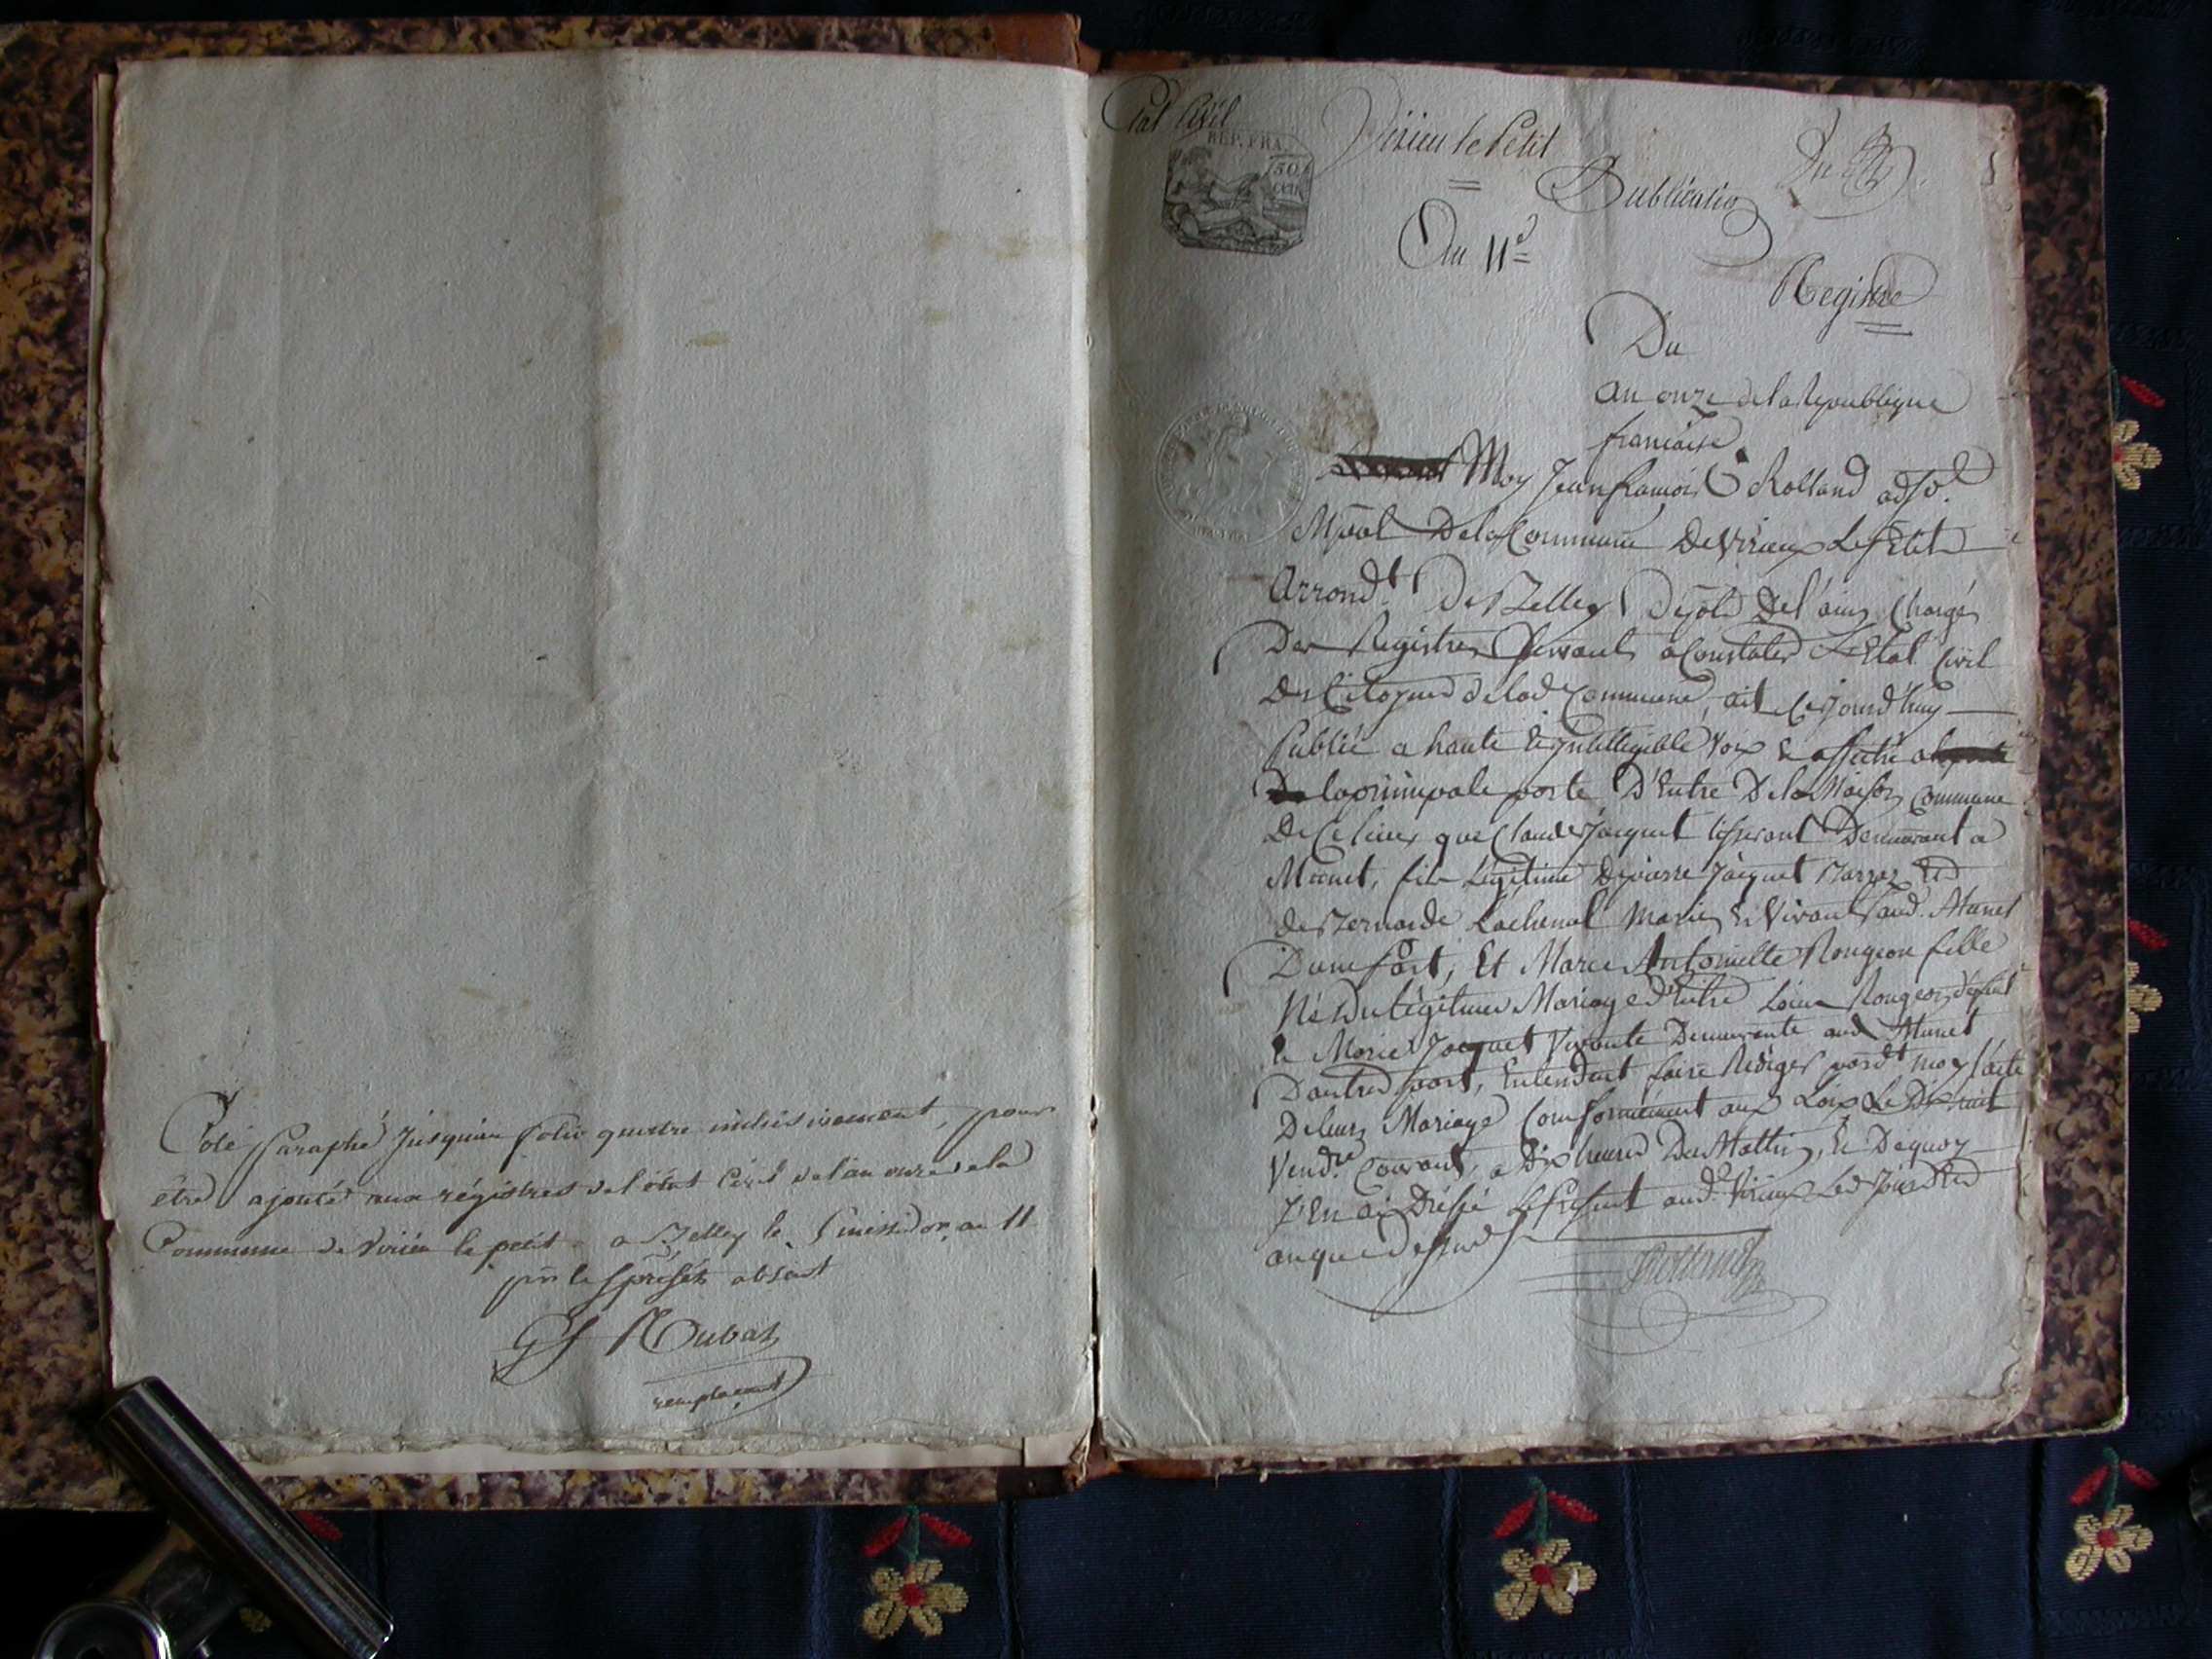 Coté Paraphé jusqu'au folio quatre inclusivement, pour
être ajouté aux régistres de l'état Civil de l'an onze de la
Commune de Virieu le petit a Belley le 6 messidor an 11
pr le s/préfet absent
Rubat
remplacant
Etat Civil
REP. FRA.
50
CEN
Virieu le Petit
Publication
An 11e
Registre
Du
an onze de la Republique
francaise
Moy Jean francois Rolland adjt
Mpāl De la Commune De Virieux Le Petit
Arrondt De Belley Dépt De l'ain, Chargé
Des Registres Servant a Constater L'Etat Civil
Des Citoyens de lad Commune, ait Cejourd'huy
Publié a haute & Intelligible Voix & affiché a
la principale porte D'Entre De la Maison Commune
De Ce lieu, que Claude Jacquet tisserant Demeurant a
Munet, fils Légitime De pierre Jacquet
de Bernarde Lachenal Mariés & Vivant aud. Munet
D'une part, Et Marie Antoinette Rougeon fille
Née Du Légitime Mariage d'Entre Rougeon, défunt
& Marie Jacquet Vivante Demeurante aud Munet
D'autre part, Entendent faire Rédiger pard moy l'acte
De leur Mariage Conformément aux Loix Le
Vendre Courant, a Dix heures Du Mattin, & De quoy
J'En ai Dréssé Le présent aud. Virieux Led Jour &
an que Dessus
Rolland